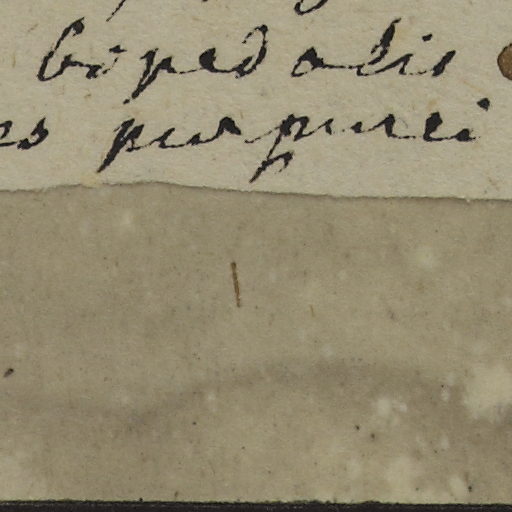 bopedalis
es purpurei